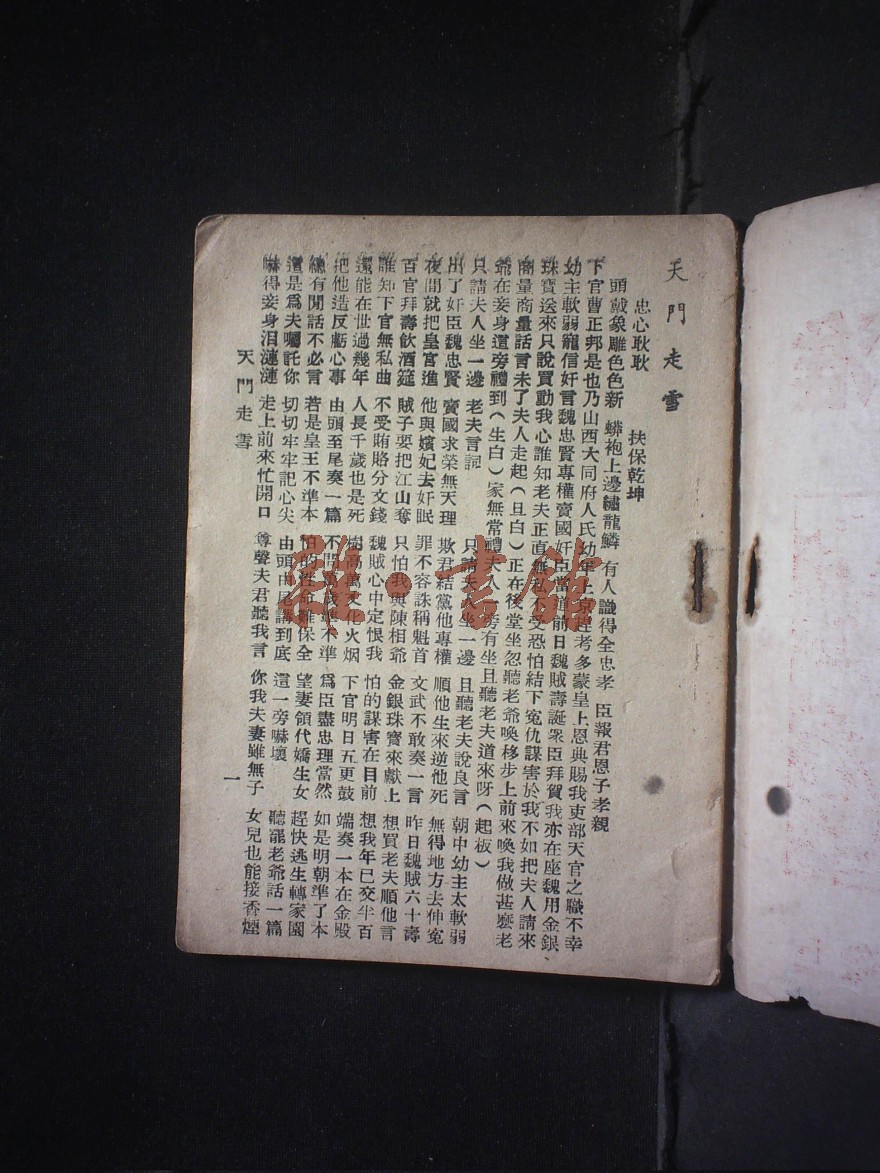 天門走雪
忠心耿耿 扶保乾坤
頭戴象雕色色新 蟒袍上邊繡龍鱗 有人識得全忠孝 臣報君恩子孝親
下官曹正邦是也乃山西大同府人氏幼年上京趕考多蒙皇上恩典賜我吏部天官之職不幸
幼主軟弱寵信奸言魏忠賢專權賣國奸臣當道前日魏賊壽誕衆臣拜賀我亦在座魏用金銀
珠寶送來只說買動我心誰知老夫正直無私不受恐怕結下冤仇謀害於我不如把夫人請來
商量商量話言未了夫人走起(旦白)正在後堂坐忽聽老爺喚移步上前來喚我做甚麼老
爺在妾身這旁禮到(生白)家無常禮夫人一旁有坐且聽老夫道來呀(起板)
只請夫人坐一邊 老夫言詞 只請夫人坐一邊 且聽老夫說良言 朝中幼主太軟弱
出了奸臣魏忠賢 賣國求榮無天理 欺君結黨他專權 順他生來逆他死 無得地方去伸冤
夜間就把皇宮進 他與嬪妃去奸眠 罪不容誅稱魁首 文武不敢奏一言 昨日魏賊六十壽
百官拜壽飲酒筵 賊子要把江山奪 只怕我與陳相爺 金銀珠寶來獻上 想買老夫順他言
誰知下官無私曲 不受賄賂分文錢 魏賊心中定恨我 怕的謀害在目前 想我年已交半百
還能在世過幾年 人長千歲也是死 樹高萬丈化火烟 下官明日五更鼓 端奏一本在金殿
把他造反虧心事 由頭至尾奏一篇 不問萬歲準不準 爲臣盡忠理當然 如是明朝準了本
總有閒話不必言 若是皇王不準本 怕的性命難保全 望妻領代嬌生女 趕快逃生轉家園
這是爲夫囑託你 切切牢牢記心尖 由頭由尾講到底 這一旁嚇壞 聽罷老爺話一篇
嚇得妾身泪漣漣 走上前來忙開口 尊聲夫君聽我言 你我夫妻雖無子 女兒也能接香煙
天門走雪 一
雜·書館